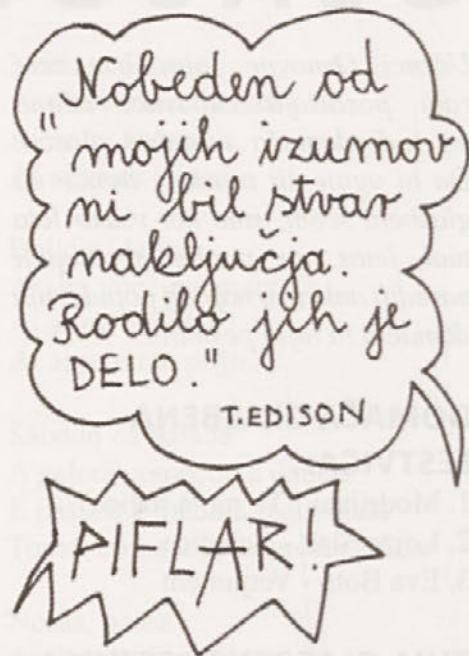 "Nobeden od
mojih izumov
ni bil stvar
naključja.
Rodilo jih je
DELO."
T.EDISON
PIFLAR!